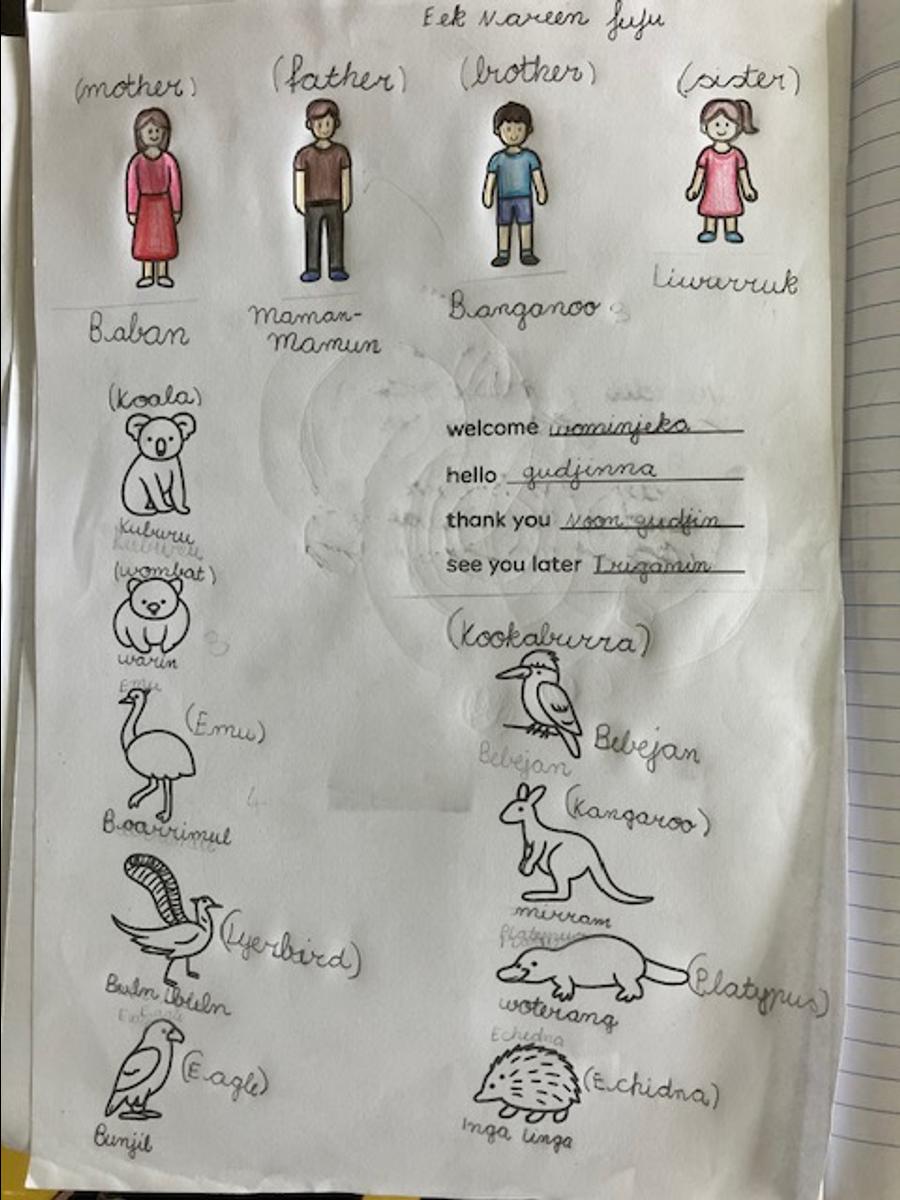 Eek Nareen fufu
(mother) (father) (brother) (sister)
Baban
Maman-
Mamun
Banganoo
Liwurruk
(Koala)
Kuburu
(wombat)
warin
Emu
(Emu)
Boarrimul
(Lyerbird)
Buln Buln
(Eagle)
Bunjil
welcome wominjeka
hello gudjinna
thank you Noon gudjin
see you later Twigamin
(Kookaburra)
Bebejan
Bebejan
(Kangaroo)
mirram
Platypus
(Platypus)
woterang
Echidna
(Echidna)
Inga Linga